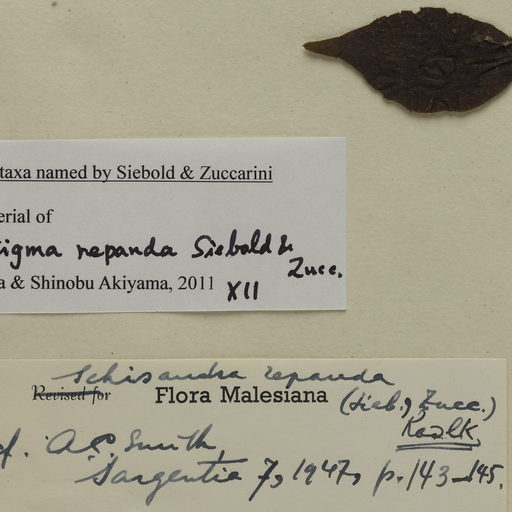 taxa named by Siebold & Zuccarini
erial of
igma repanda Siebold &
Zucc.
a & Shinobu Akiyama, 2011 XII
Schisandra repanda
Revised for Flora Malesiana (Sieb. & Zucc.)
f. A.C. Smith,
Sargentia 7, 1947, p. 143-145.